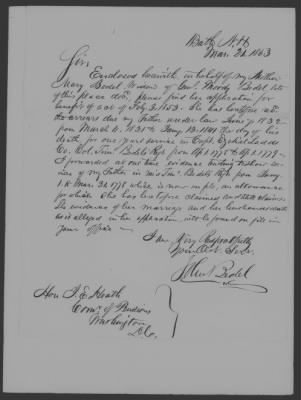 Bath, N.H.
Mar. 21. 1853
Sir,
Enclosed herewith, in behalf of my Mother
Mary Bedel Widow of Gen'l Moody Bedel late
of this place dec'd, please find her application for
benefit of act of July 3. 1853. She has heretofore
the arrears due my Father under law June 7. 1832
from March 4. 1831 to Jany. 13. 1841 the day of his
death for one years service in Capt. Ezekiel Ladds
Co. Col. Tim. Bedels Regt. from Apl. 1. 1778 to Apl. 1. 1779
I forwarded at one time evidence further
ice of my Father in Tim. Bedels Regt. from Jany.
1 to Mar. 31. 1778 which is now on file, an allowance
for which She has heretofore claimed and still claims.
The evidence of her marriage and her husbands death
as is alleged in her application is to be found on file in
your office
I am Very Respectfully
Your Obt. Servt.
John Bedel
Hon. J. E. Heath
Comr. of Pensions
Washington
D.C.